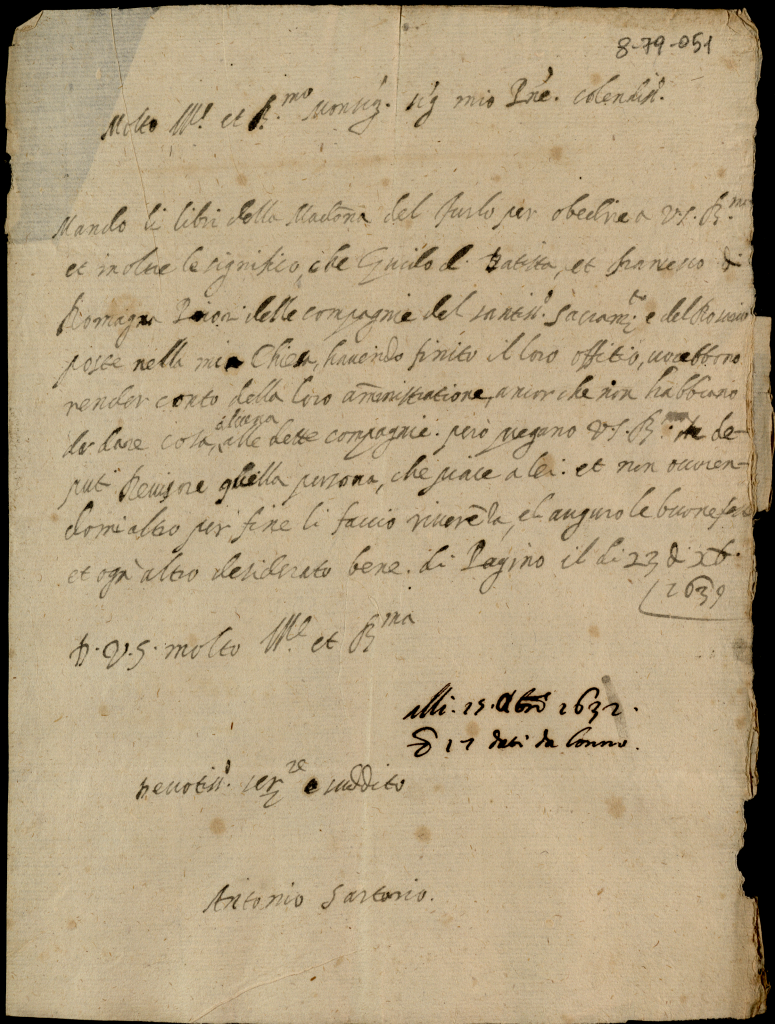 8-79-051
Molto Ill. et R.mo Monsig. Sig mio P'ne. colendis.
Mando li libri della Madona del Furlo per obedire a V.S. R.ma
et inoltre le significo, che Guido d. Batista, et francesco di
Romagna Priori delle compagnie del santis. Sacram.to e del Rosario
poste nella mia Chiesa, havendo finito il loro offitio, vorebbono
render conto della loro aministratione, ancor che non habbiano
da dare cosa alcuna alle dette compagnie. però pregano V.S. R. de-
put. Revisore quella persona, che piace a lei: et non occoren-
domi altro per fine li faccio riverenda, et auguro le buone
et ogn' altro desiderato bene. di Pagino il di 23 di Xb.
1639
D. V. S. molto Ill. et R.ma
alli. 15. 1632.
17 dati da
Devotis. ser.re e suddito
Antonio Sartorio.